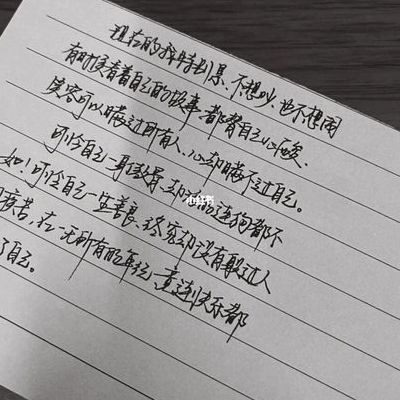 现在的我特别累、不想吵、也不想闹
有时候看着自己的故事、都替自己心酸、
笑容可以瞒过所有人、心却瞒不过自己。
可怜自己一身傲骨、却活的连狗都不
如！可怜自己一生善良、终究却没有
疾苦，在一无所有的年纪，连快乐都
了自己。
小红书